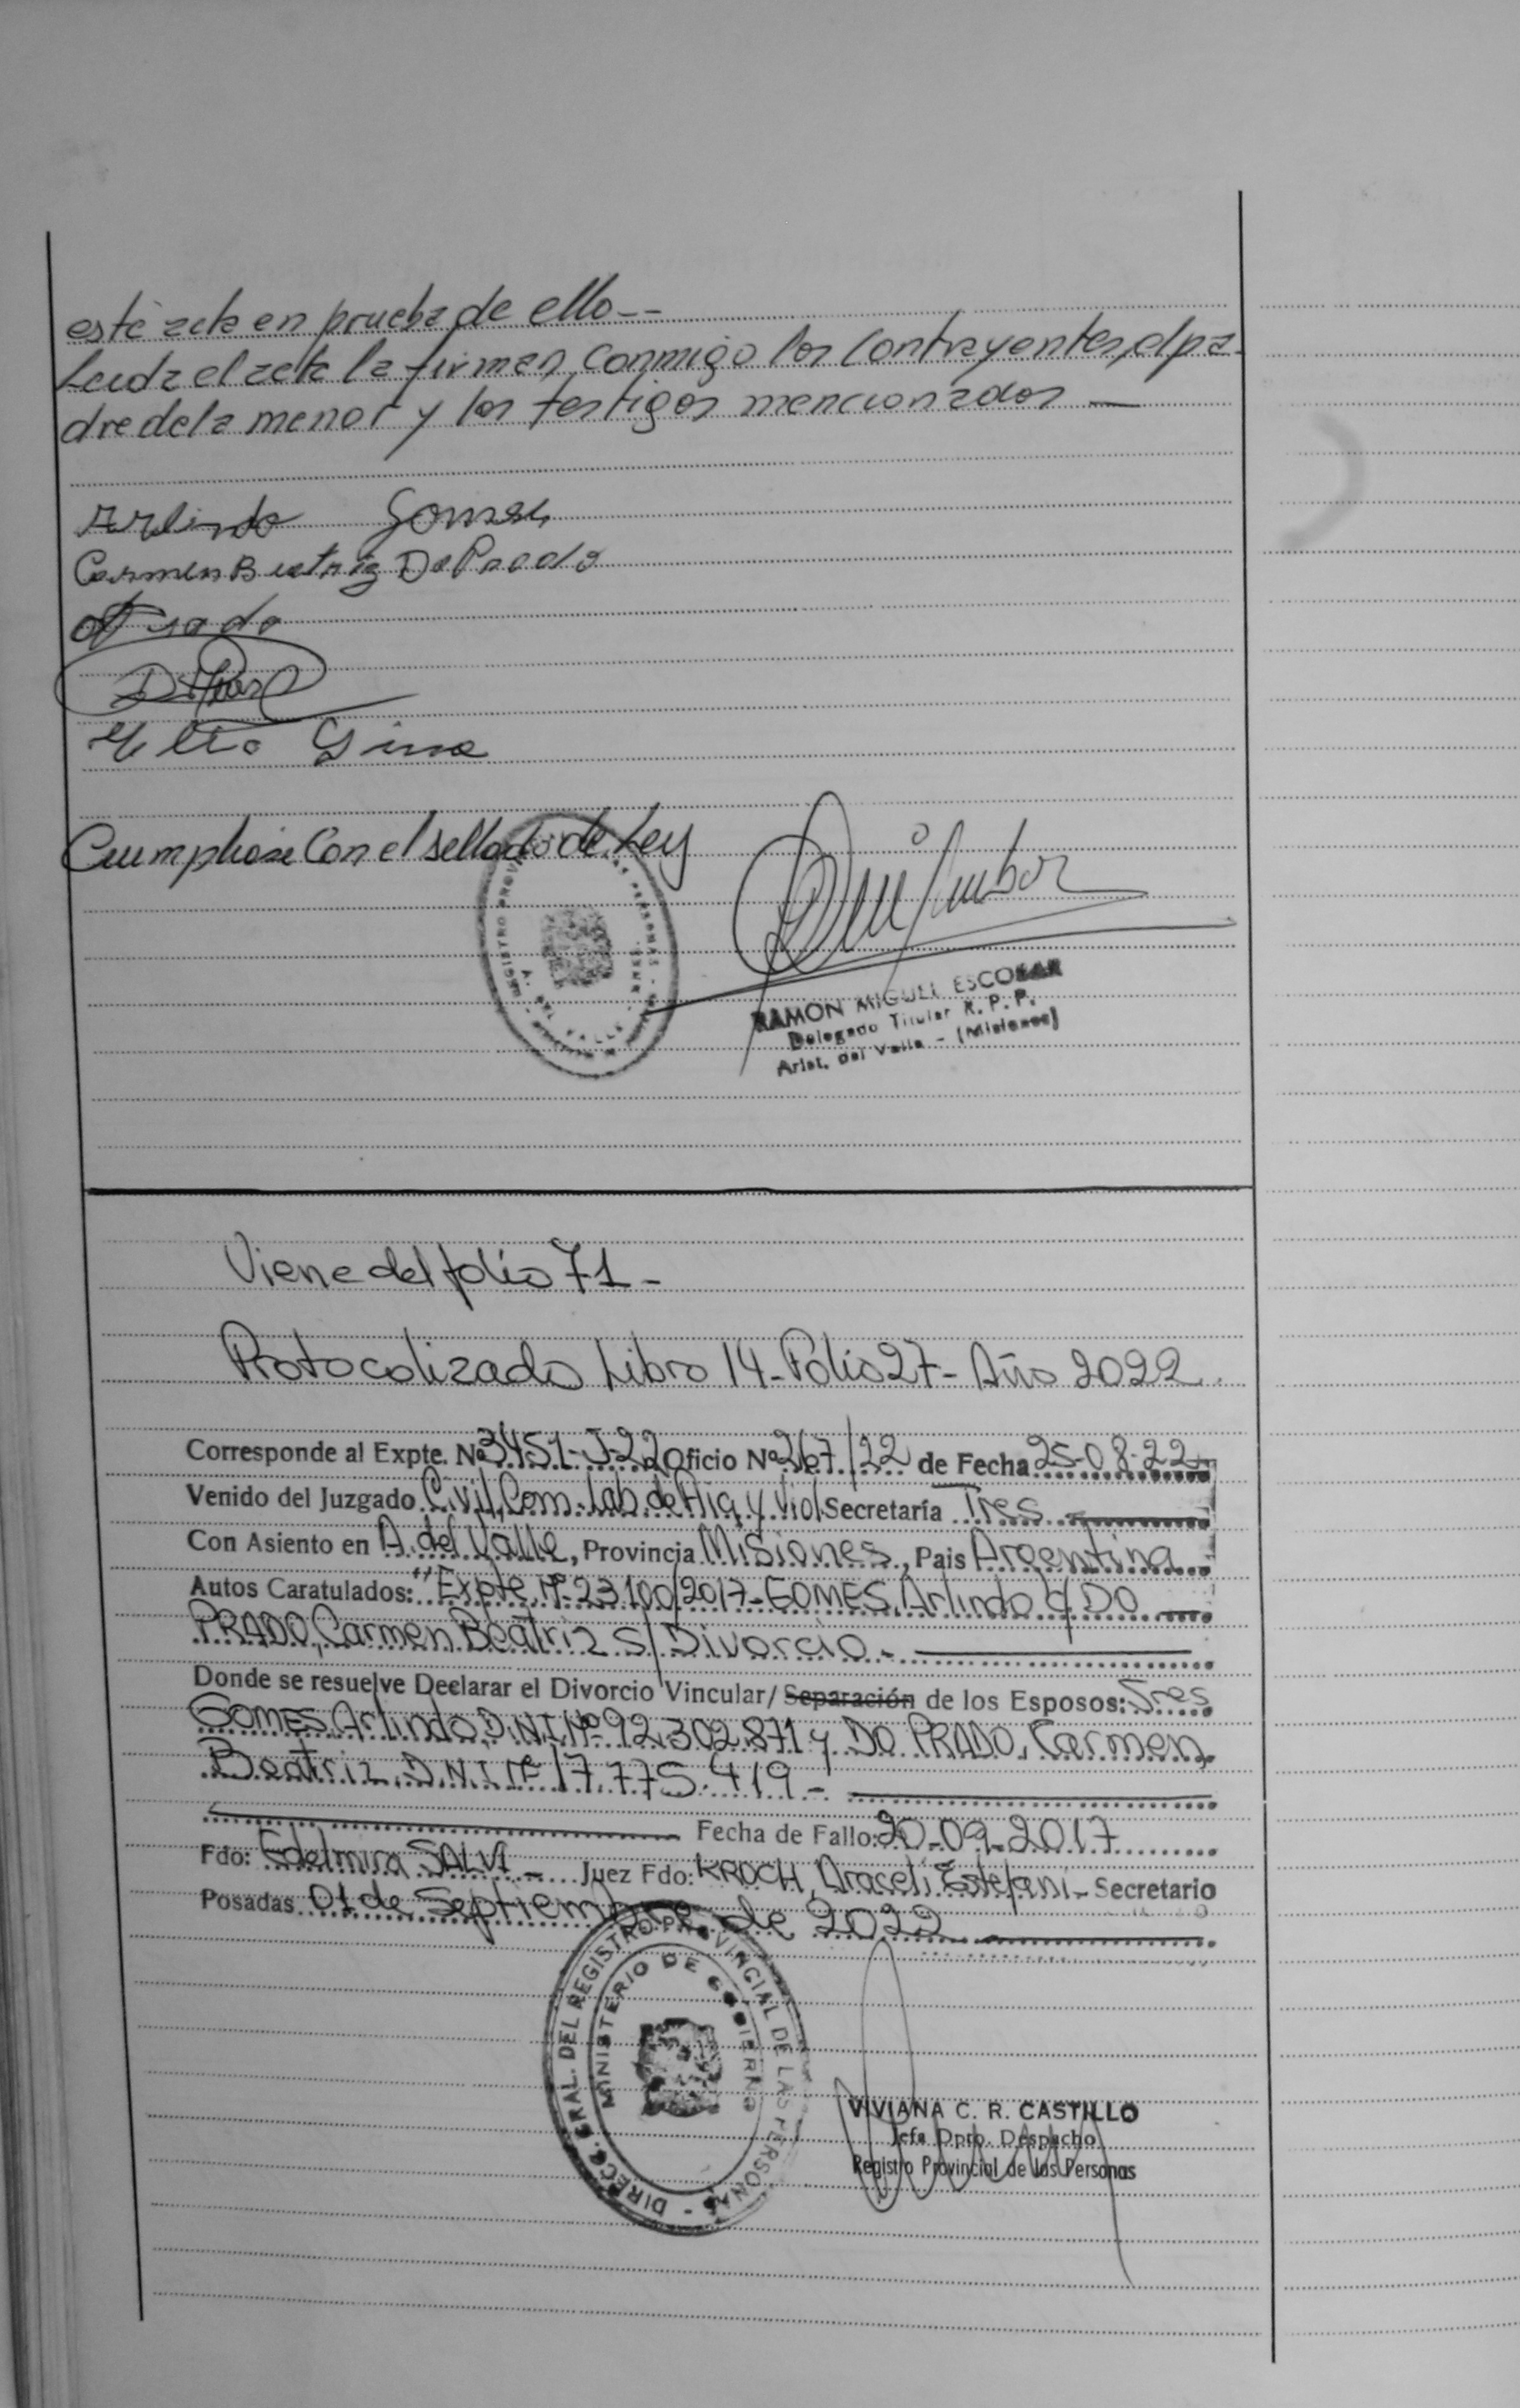 este acta en prueba de ello--
Leida el acta la firman conmigo los contrayentes, el pa-
dre de la menor y los testigos mencionados —
Arlindo Gomes
Carmen Beatriz Do Prado
Prado
Cumpliose Con el sellado de Ley
RAMON MIGUEL ESCOBAR
Delegado Titular R. P. P.
Arist. del Valle - (Misiones)
Viene del folio 71-
Protocolizado Libro 14-Folio 27- Año 2022.
Corresponde al Expte. Nº 3451-J-22 Oficio Nº 267/22 de Fecha 25-08-22-
Venido del Juzgado Civil, Com. Lab. de Flia y Viol Secretaría Tres
Con Asiento en A. del Valle, Provincia Misiones, Pais Argentina
Autos Caratulados: "Expte. Nº 23100/2017-GOMES, Arlindo c/ DO
PRADO, Carmen Beatriz s/ Divorcio-
Donde se resuelve Declarar el Divorcio Vincular/ Separación de los Esposos: Sres
GOMES, Arlindo, D.N.I. Nº 92.302.871 y DO PRADO, Carmen
Beatriz D.N.I. Nº 17.775.419-
Fecha de Fallo: 20-09-2017
Fdo: Edelmira SALVA- Juez Fdo: KROCH, Araceli Estefani- Secretario
Posadas 01 de Septiembre de 2022
DIRECC. GRAL. DEL REGISTRO PROVINCIAL DE LAS PERSONAS -
MINISTERIO DE GOBIERNO
VIVIANA C. R. CASTILLO
Jefa Dpto. Despacho
Registro Provincial de las Personas